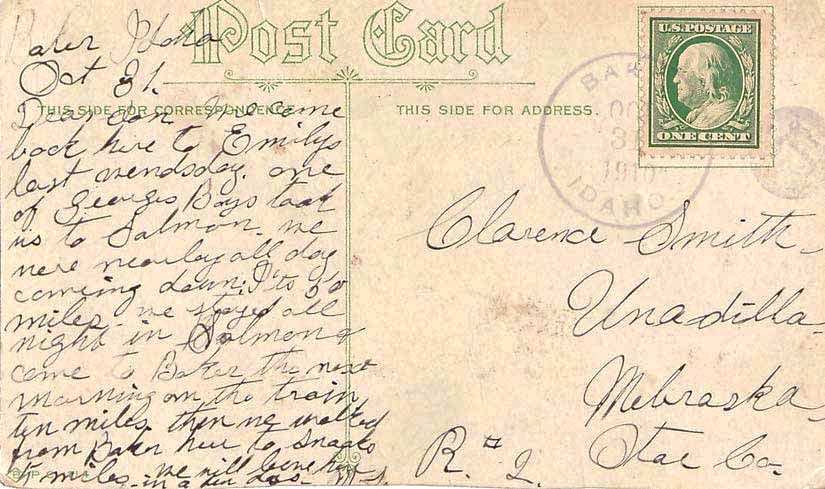 Post Card
Baker Idaho
Oct 31.
THIS SIDE FOR CORRESPONDENCE
Dear son we come
back here to Emilys
last wendsday. one
of Georges Boys took
us to Salmon. we
were nearly all day
coming down. I'ts 50
miles. we stayed all
night in Salmon &
come to Baker the next
morning on the train
ten miles. then we walked
from Baker here to
miles. we will leave
in a few
THIS SIDE FOR ADDRESS.
U.S. POSTAGE
ONE CENT
BAK
OC
31
1910
IDAHO
Clarence Smith
Unadilla
Nebraska
R. #2. Otoe Co.